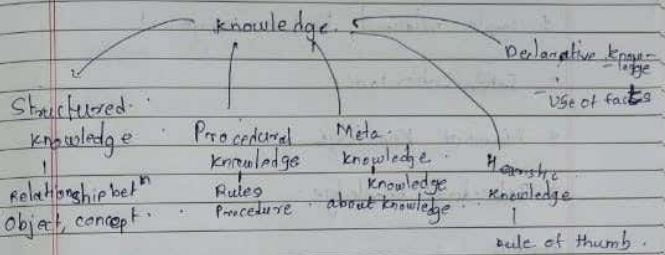 Knowledge.
Declarative Knowledge
- Use of facts
Structured.
Knowledge
Relationship betn
Object, concept.
Procedural
Knowledge
Rules
Procedure
Meta.
Knowledge.
Knowledge
about knowledge
Heuristic
Knowledge
Rule of thumb.